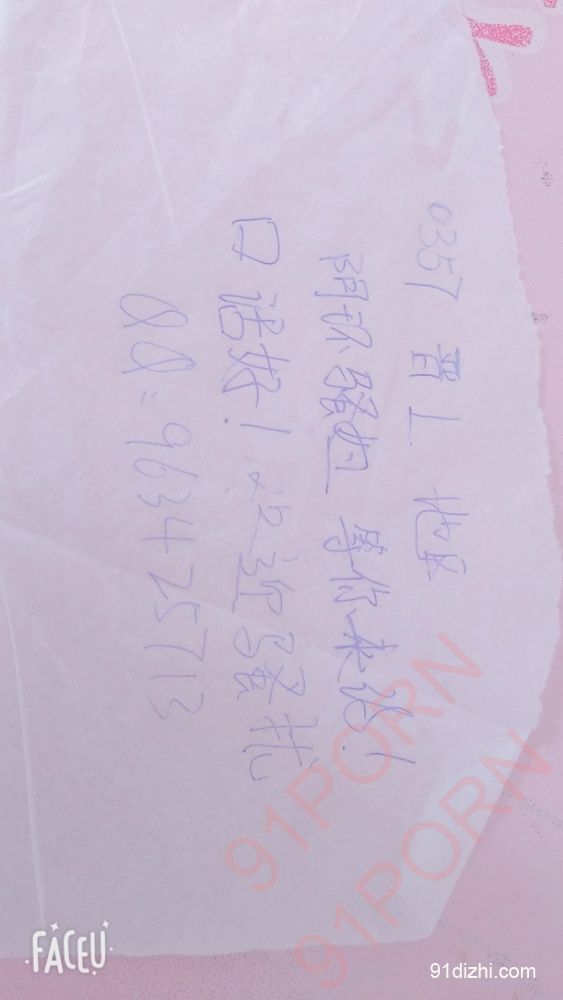 0357 晋L 地区
阴环骚 等你来!
口活好！欢迎骚扰
QQ:963425713
91PORN
91PORN
FACEU
91dizhi.com